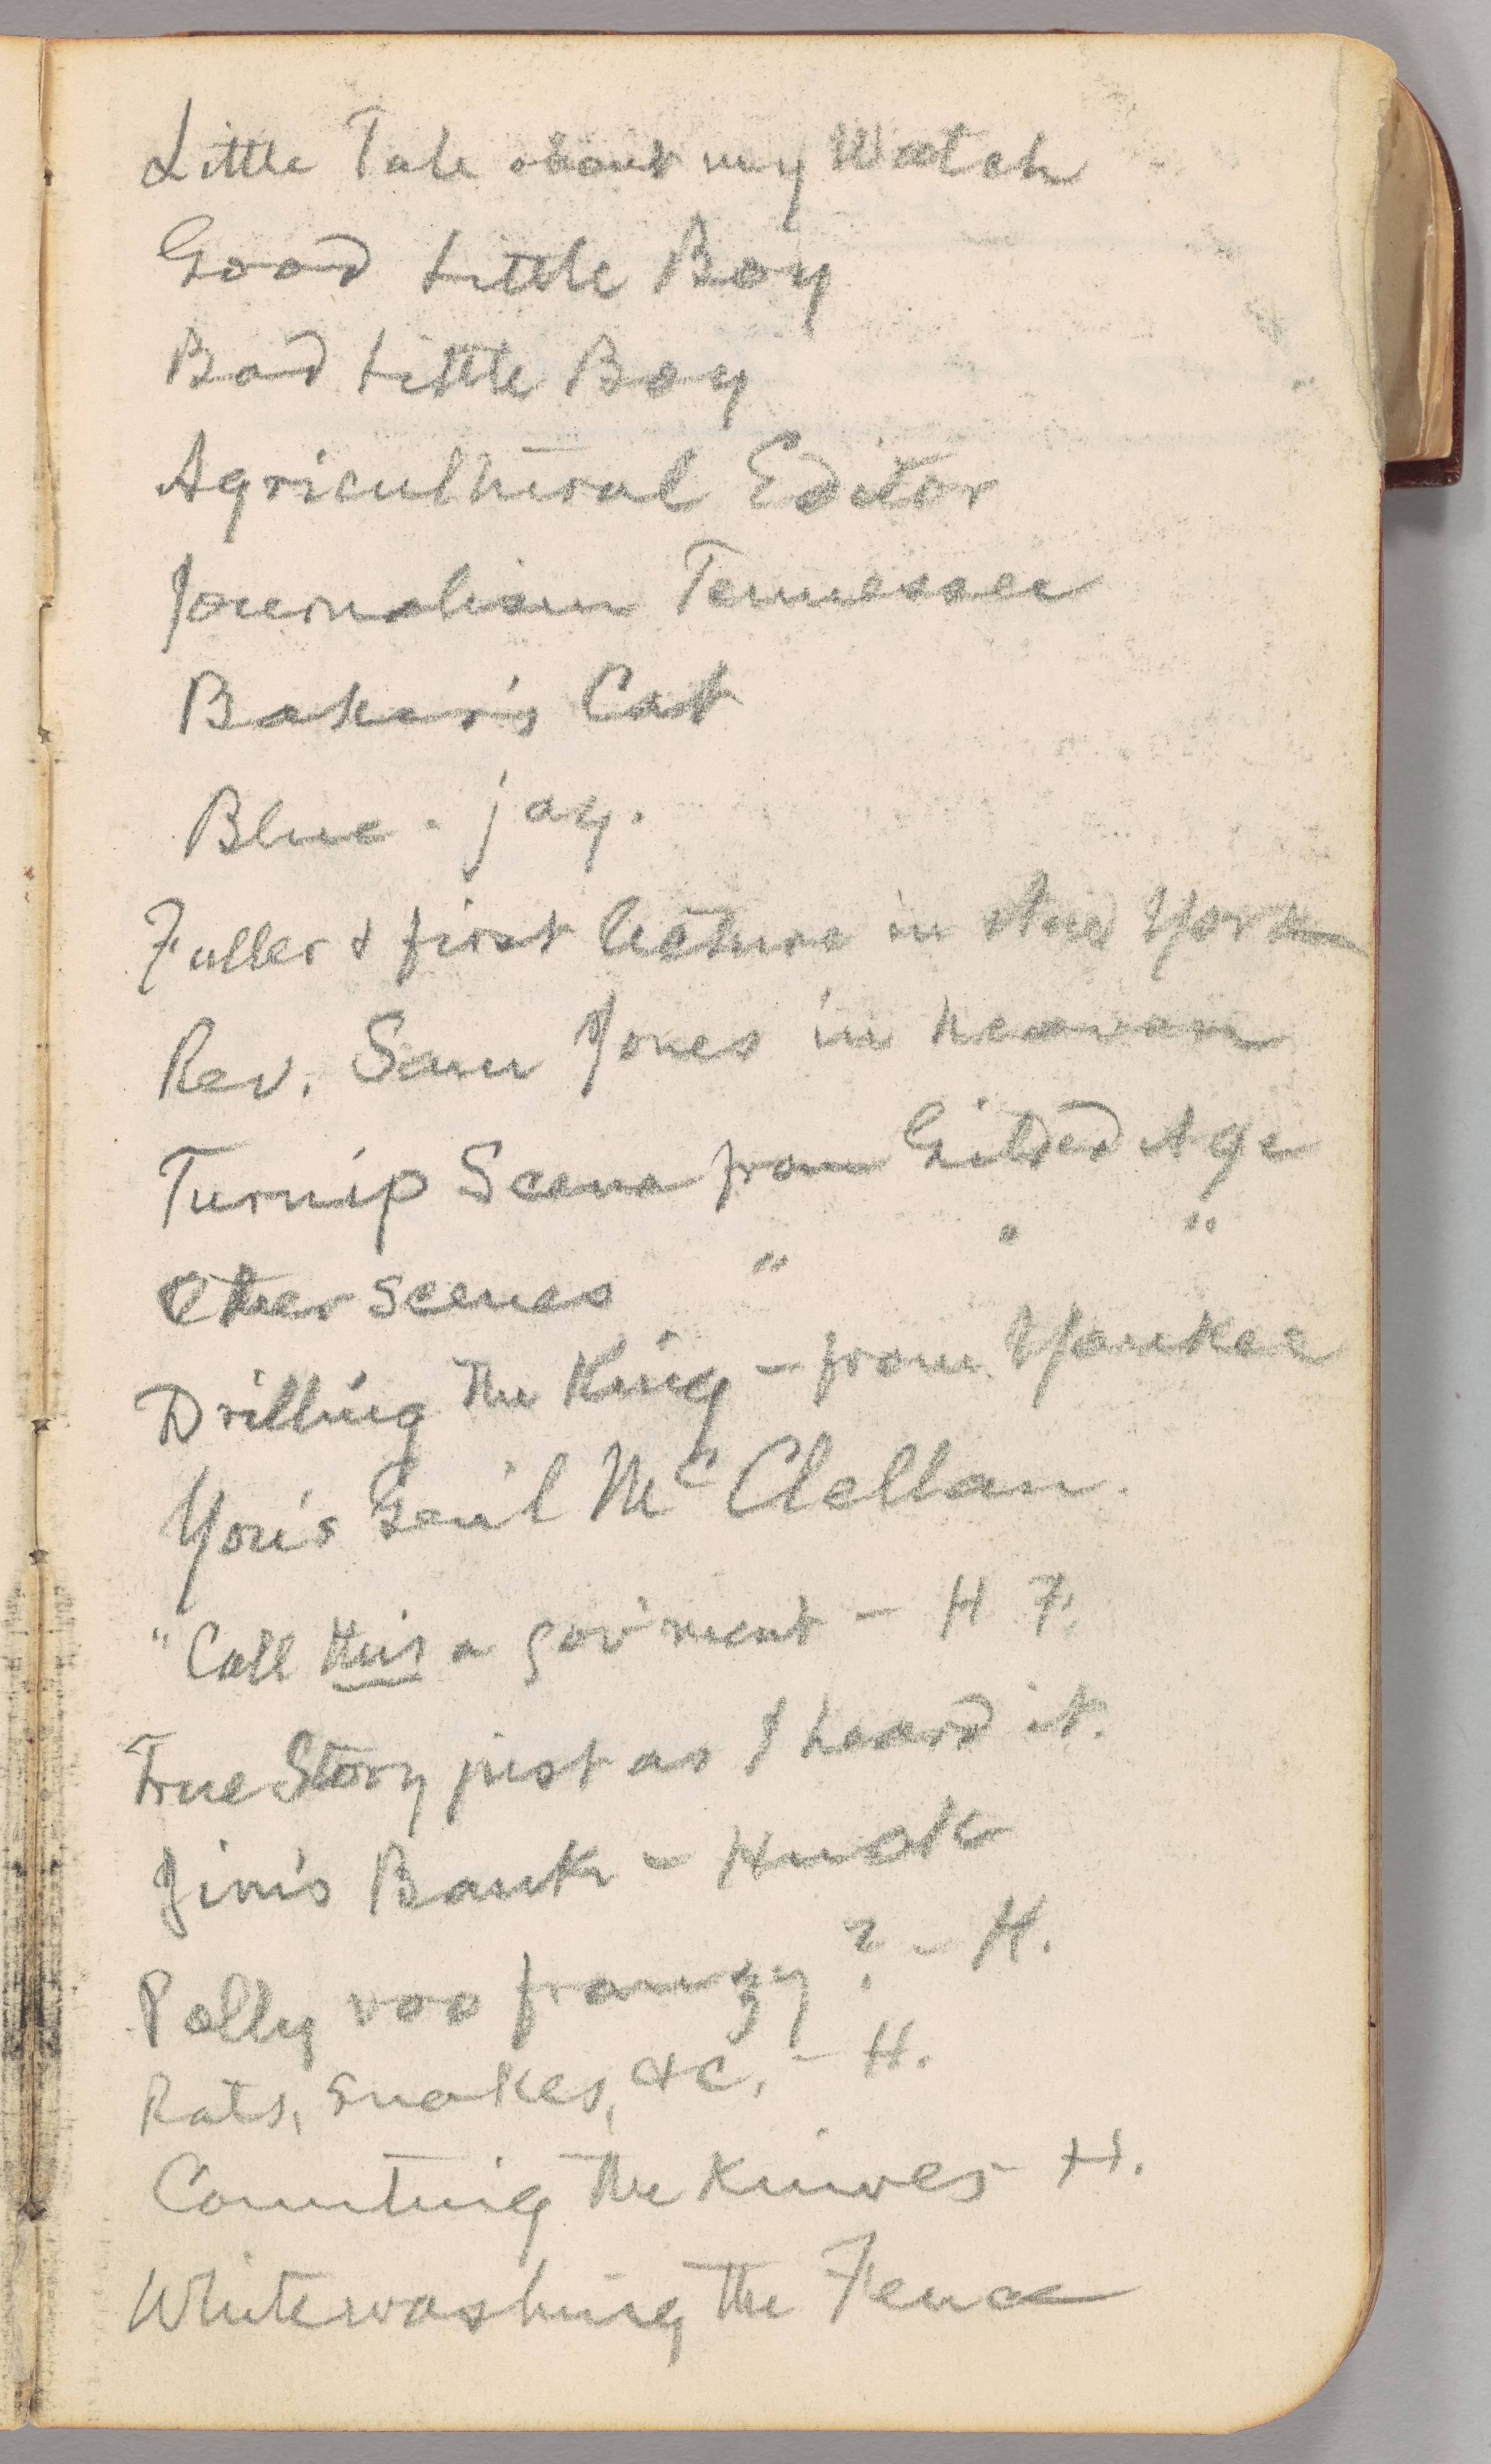 Little Tale about my Watch
Good Little Boy
Bad Little Boy
Agricultural Editor
Journalism Tennessee
Baker's Cat
Blue-jay.
Fuller & first lecture in New York
Rev. Sam Jones in heaven
Turnip Scene from Gilded Age
Other scenes " " "
Drilling the King – from Yankee
You's Gen'l McClellan.
"Call this a gov'ment – H F.
True Story just as I heard it.
Jim's Bank – Huck
Polly voo franzy? – H.
Rats, snakes, &c. – H.
Counting the Knives – H.
Whitewashing the Fence